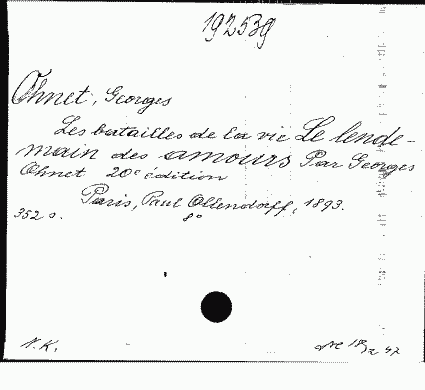 192539
Ohnet, Georges
Les batailles de la vie Le lende-
main des amours Par Georges
Ohnet 20e édition
Paris, Paul Ollendorff, 1893.
352 s. 8°
N.K.